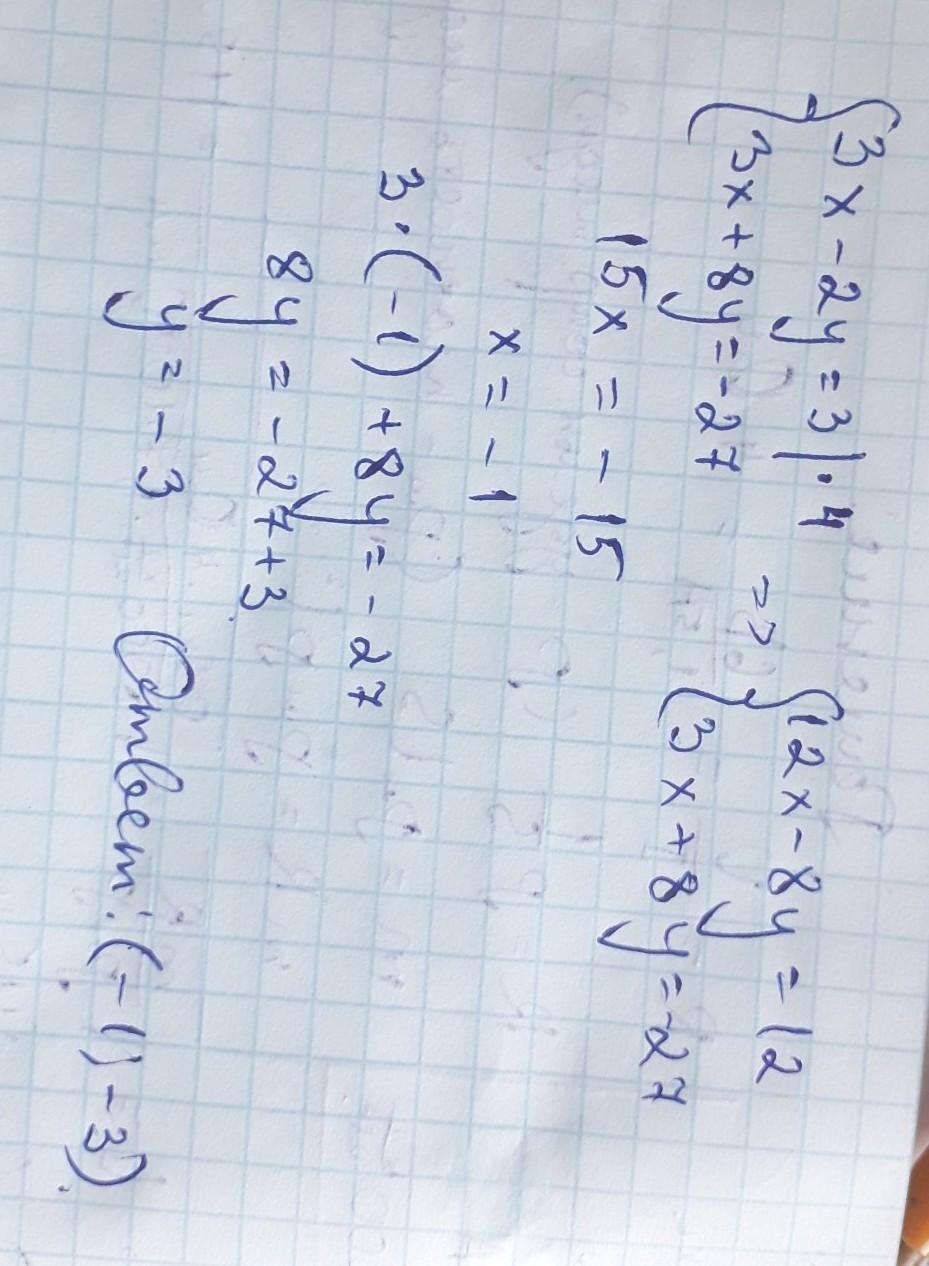 { 3x - 2y = 3 | · 4
{ 3x + 8y = -27
=> { 12x - 8y = 12
{ 3x + 8y = -27
15x = - 15
x = - 1
3 · (-1) + 8y = - 27
8y = - 27 + 3
y = - 3
Ответ: (-1; -3)